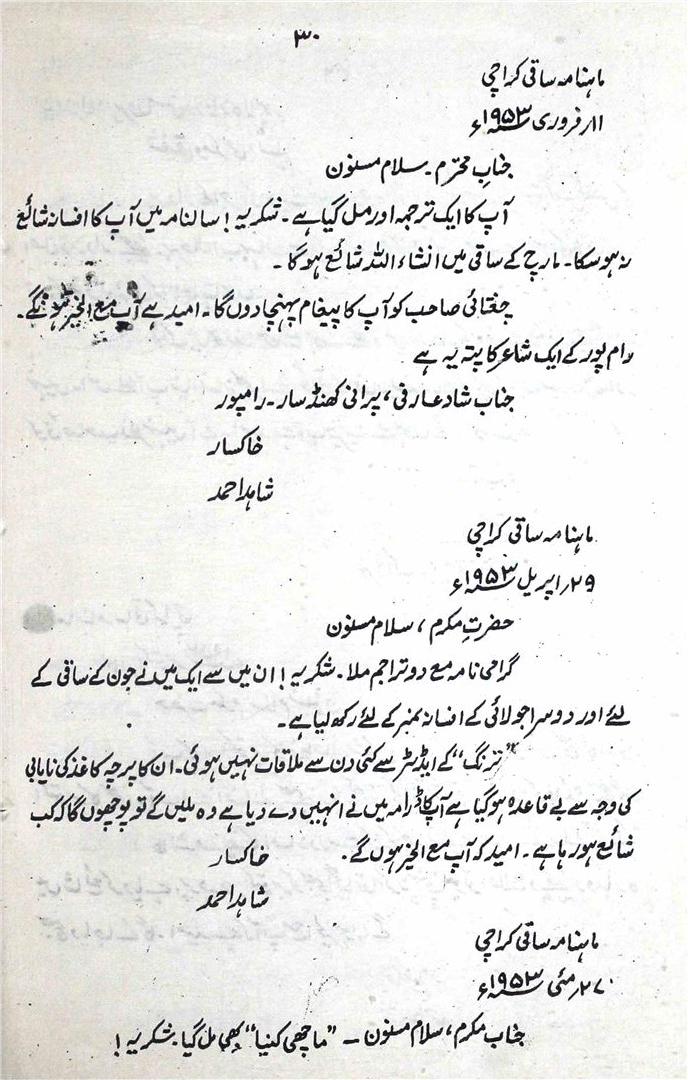 ۳۰
ماہنامہ ساقی کراچی
۱۱ر فروری ۱۹۵۳ء
جنابِ محترم۔ سلام مسنون
آپ کا ایک ترجمہ اور مل گیا ہے۔ شکریہ! سالنامہ میں آپ کا افسانہ شائع
نہ ہو سکا۔ مارچ کے ساقی میں انشاء اللہ شائع ہو گا۔
چغتائی صاحب کو آپ کا پیغام پہنچا دوں گا۔ امید ہے آپ مع الخیر ہونگے۔
رام پور کے ایک شاعر کا پتہ یہ ہے
جناب شاد عارفی، پرانی کھنڈ سار۔ رامپور
خاکسار
شاہد احمد
ماہنامہ ساقی کراچی
۲۹ر اپریل ۱۹۵۳ء
حضرتِ مکرم، سلام مسنون
گرامی نامہ مع دو تراجم ملا۔ شکریہ! ان میں سے ایک میں نے جون کے ساقی کے
لئے اور دوسرا جولائی کے افسانہ نمبر کے لئے رکھ لیا ہے۔
”ترنگ“ کے ایڈیٹر سے کئی دن سے ملاقات نہیں ہوئی۔ ان کا پرچہ کاغذ کی نایابی
کی وجہ سے بے قاعدہ ہو گیا ہے آپ کا ڈرامہ میں نے انہیں دے دیا ہے وہ ملیں گے تو پوچھوں گا کہ کب
شائع ہو رہا ہے۔ امید کہ آپ مع الخیر ہوں گے۔
خاکسار
شاہد احمد
ماہنامہ ساقی کراچی
۲۷ر مئی ۱۹۵۳ء
جناب مکرم، سلام مسنون ۔ ”ماچھی کنیا“ بھی مل گیا۔ شکریہ!